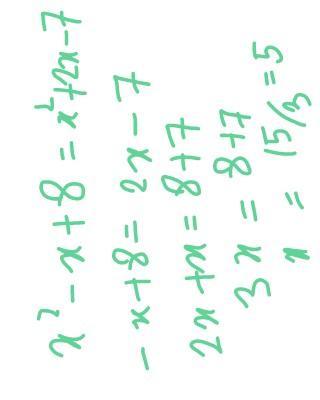 x² - x + 8 = x² + 2x - 7
- x + 8 = 2x - 7
2x + x = 8 + 7
3x = 8 + 7
x = 15/3 = 5